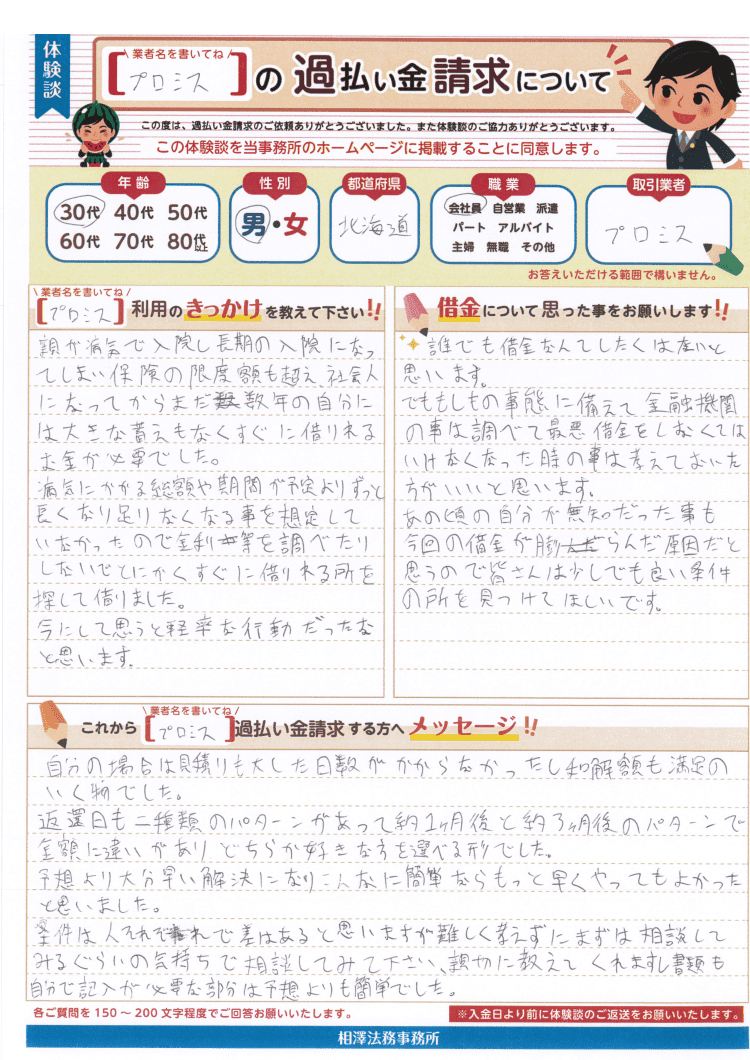 体験談
業者名を書いてね
[プロミス]の過払い金請求について
この度は、過払い金請求のご依頼ありがとうございました。また体験談のご協力ありがとうございます。
この体験談を当事務所のホームページに掲載することに同意します。
年齢
30代 40代 50代
60代 70代 80代以上
性別
男・女
都道府県
北海道
職業
会社員 自営業 派遣
パート アルバイト
主婦 無職 その他
取引業者
プロミス
お答えいただける範囲で構いません。
業者名を書いてね
[プロミス]利用のきっかけを教えて下さい!!
親が病気で入院し長期の入院になっ
てしまい保険の限度額も超え社会人
になってからまだ数年の自分に
は大きな蓄えもなくすぐに借りれる
お金が必要でした。
病気にかかる総額や期間が予定よりずっと
長くなり足りなくなる事を想定して
いなかったので金利等を調べたり
しないでとにかくすぐに借りれる所を
探して借りました。
今にして思うと軽率な行動だったな
と思います。
借金について思った事をお願いします!!
誰でも借金なんてしたくはないと
思います。
でももしもの事態に備えて金融機関
の事は調べて最悪借金をしなくては
いけなくなった時の事は考えておいた
方がいいと思います。
あの頃の自分が無知だった事も
今回の借金が膨らんだ原因だと
思うので皆さんは少しでも良い条件
の所を見つけてほしいです。
業者名を書いてね
これから[プロミス]過払い金請求する方へメッセージ!!
自分の場合は見積りも大した日数がかからなかったし和解額も満足の
いく物でした。
返還日も二種類のパターンがあって約1ヶ月後と約3ヶ月後のパターンで
金額に違いがありどちらか好きな方を選べる形でした。
予想より大分早い解決になりこんなに簡単ならもっと早くやってもよかった
と思いました。
条件は人それぞれで差はあると思いますが難しく考えずにまずは相談して
みるぐらいの気持ちで相談してみて下さい、親切に教えてくれますし書類も
自分で記入が必要な部分は予想よりも簡単でした。
各ご質問を150～200文字程度でご回答お願いいたします。
※入金日より前に体験談のご返送をお願いいたします。
相澤法務事務所